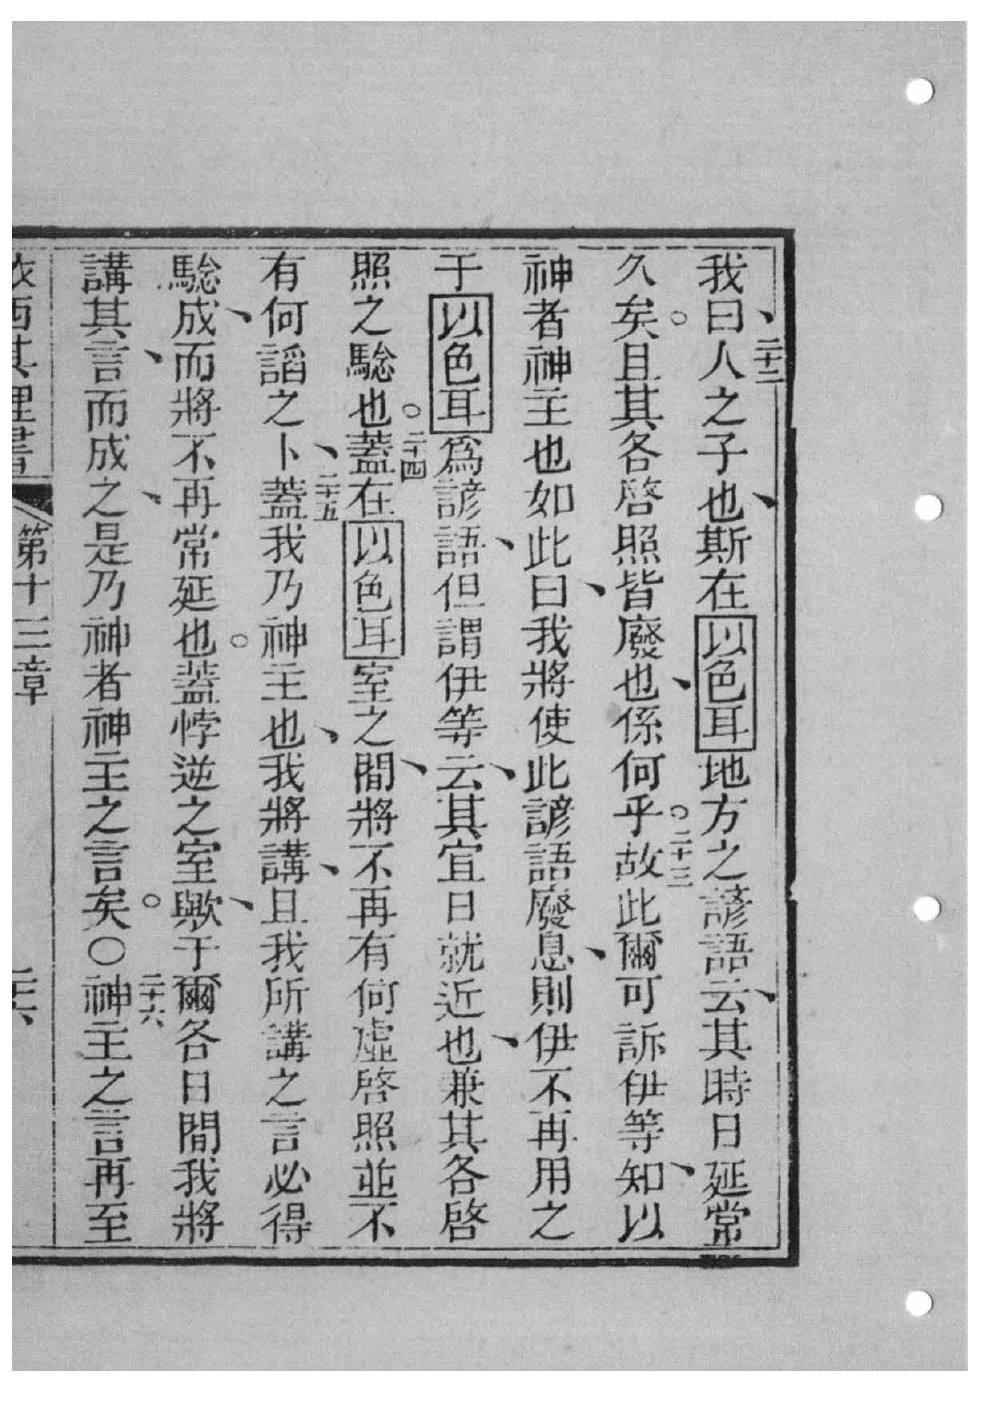 我曰、二十二人之子也、斯在以色耳地方之諺語云、其時日延常
久矣。且其各啓照皆廢也、係何乎。二十三故此爾可訴伊等知、以
神者神主也如此曰、我將使此諺語廢息、則伊不再用之
于以色耳爲諺語、但謂伊等云、其宜日就近也、兼其各啓
照之騐也。二十四蓋在以色耳室之間、將不再有何虛啓照並不
有何謟之卜、二十五蓋我乃神主也、我將講、且我所講之言必得
騐成、而將不再常延也。蓋悖逆之室歟、于爾各日間我將
講其言、而成之、是乃神者神主之言矣。〇二十六神主之言再至
依西其理書 第十二章 二十六